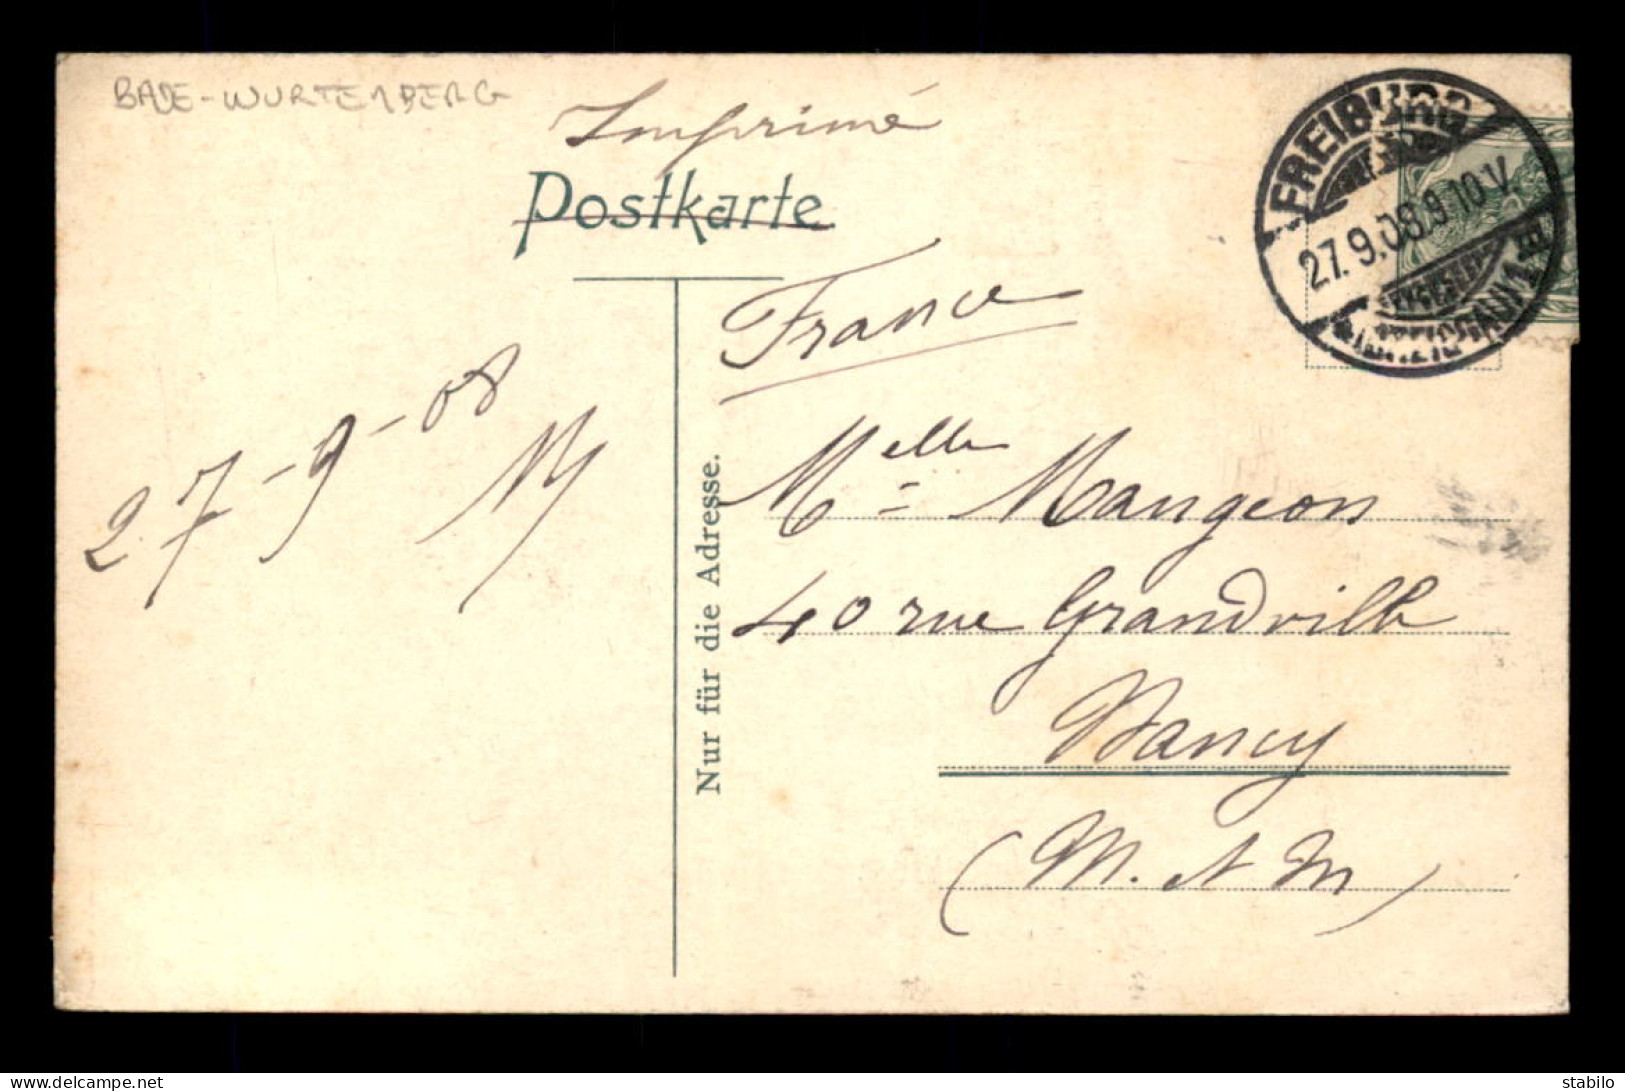 BADE-WURTEMBERG
Imprimé
Postkarte
FREIBURG
27.9.08.9-10 V
France
27-9-08
Melle Mangeon
40 rue Grandville
Nancy
(M. et M)
Nur für die Adresse.
delcampe.net
stabilo